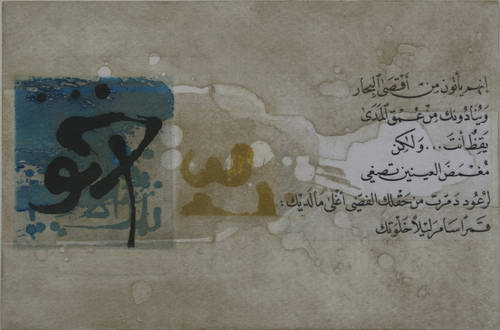 إنهم يأتون مِن أقصَى البحار
وَيُنَادونك مِنْ عُمْقِ المَدَىٰ
يَقِظٌ أنتَ... ولكن
مُغمَضَ العينين تصغي
لرُعُود دمّرت من حَقلك الفضّي أغلى مَا لَديْك:
قمرًا سامرَ ليْلاً خَلْوتك